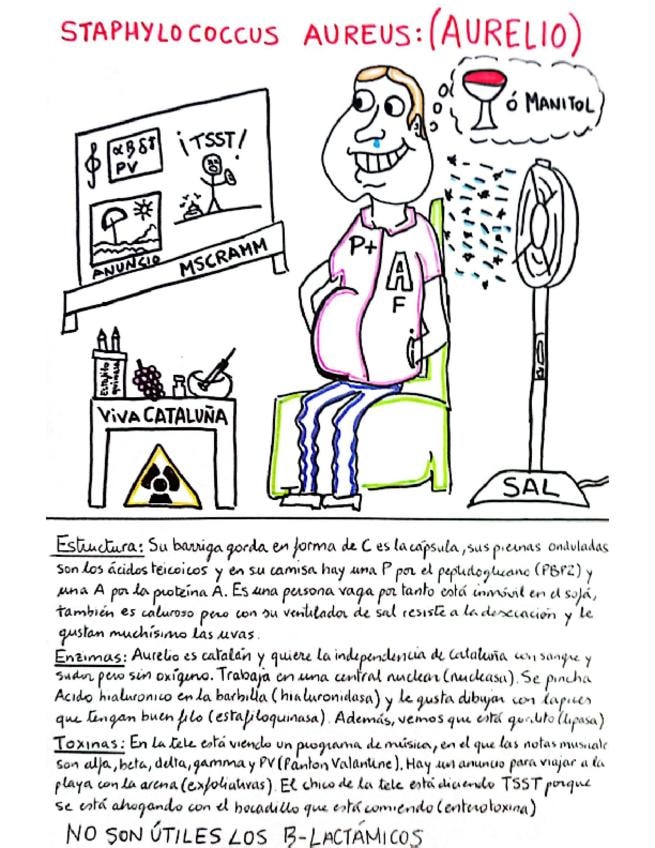 STAPHYLOCOCCUS AUREUS: (AURELIO)
ó MANITOL
α β δ γ
PV
¡TSST!
ANUNCIO
MSCRAMM
P+
A
F
Estafilo
quinasa
VIVA CATALUÑA
SAL
Estructura: Su barriga gorda en forma de C es la cápsula, sus piernas onduladas
son los ácidos teicoicos y en su camisa hay una P por el peptidoglucano (PBP2) y
una A por la proteína A. Es una persona vaga por tanto está inmóvil en el sofá,
también es caluroso pero con su ventilador de sal resiste a la desecación y le
gustan muchísimo las uvas.
Enzimas: Aurelio es catalán y quiere la independencia de Cataluña con sangre y
sudor pero sin oxígeno. Trabaja en una central nuclear (nucleasa). Se pincha
Acido hialuronico en la barbilla (hialuronidasa) y le gusta dibujar con lapices
que tengan buen filo (estafiloquinasa). Además, vemos que está gordito (lipasa)
Toxinas: En la tele está viendo un programa de música, en el que las notas musicale
son alfa, beta, delta, gamma y PV (Panton Valantine). Hay un anuncio para viajar a la
playa con la arena (exfoliativas). El chico de la tele está diciendo TSST porque
se está ahogando con el bocadillo que está comiendo (enterotoxina)
NO SON ÚTILES LOS B-LACTÁMICOS